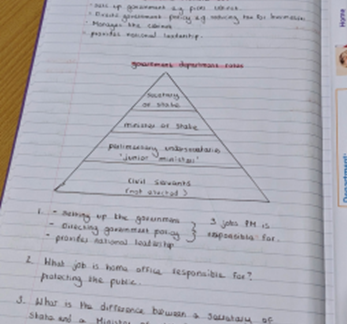 - sets up government e.g. picks cabinet.
- Directs government policy e.g. reducing tax for businesses
- Manages the cabinet
- provides national leadership.
government department roles
secretary
of state
minister of state
parliamentary undersecretaries
'junior minister'
Civil servants
(not elected)
1. - setting up the government
- Directing government policy
- provides national leadership
3 jobs PM is
responsible for.
2. What job is home office responsible for?
protecting the public.
3. What is the difference between a Secretary of
State and a Minister
Home
Department: